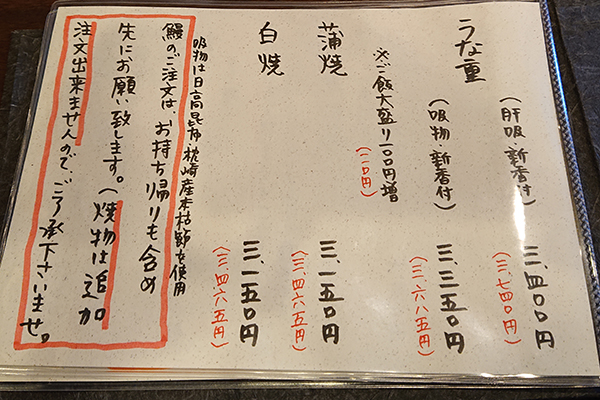 うな重
(肝吸・新香付) 三、四〇〇円
(三、七四〇円)
(吸物・新香付) 三、三五〇円
(三、六八五円)
※ご飯大盛り一〇〇円増
(一一〇円)
蒲焼 三、一五〇円
(三、四六五円)
白焼 三、一五〇円
(三、四六五円)
吸物は日高昆布・枕崎産本枯節を使用
鰻のご注文は、お持ち帰りも含め
先にお願い致します。(焼物は追加
注文出来ませんので、ご了承下さいませ。